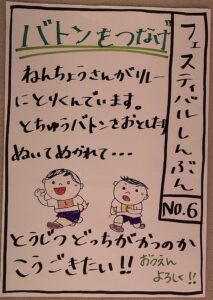 フェスティバルしんぶん
No.6
バトンをつなげ
ねんちょうさんがリレー
にとりくんでいます。
とちゅうバトンをおとしたり
ぬいてぬかれて・・・
とうじつどっちがかつのか
こうごきたい!!
おうえん
よろしく!!